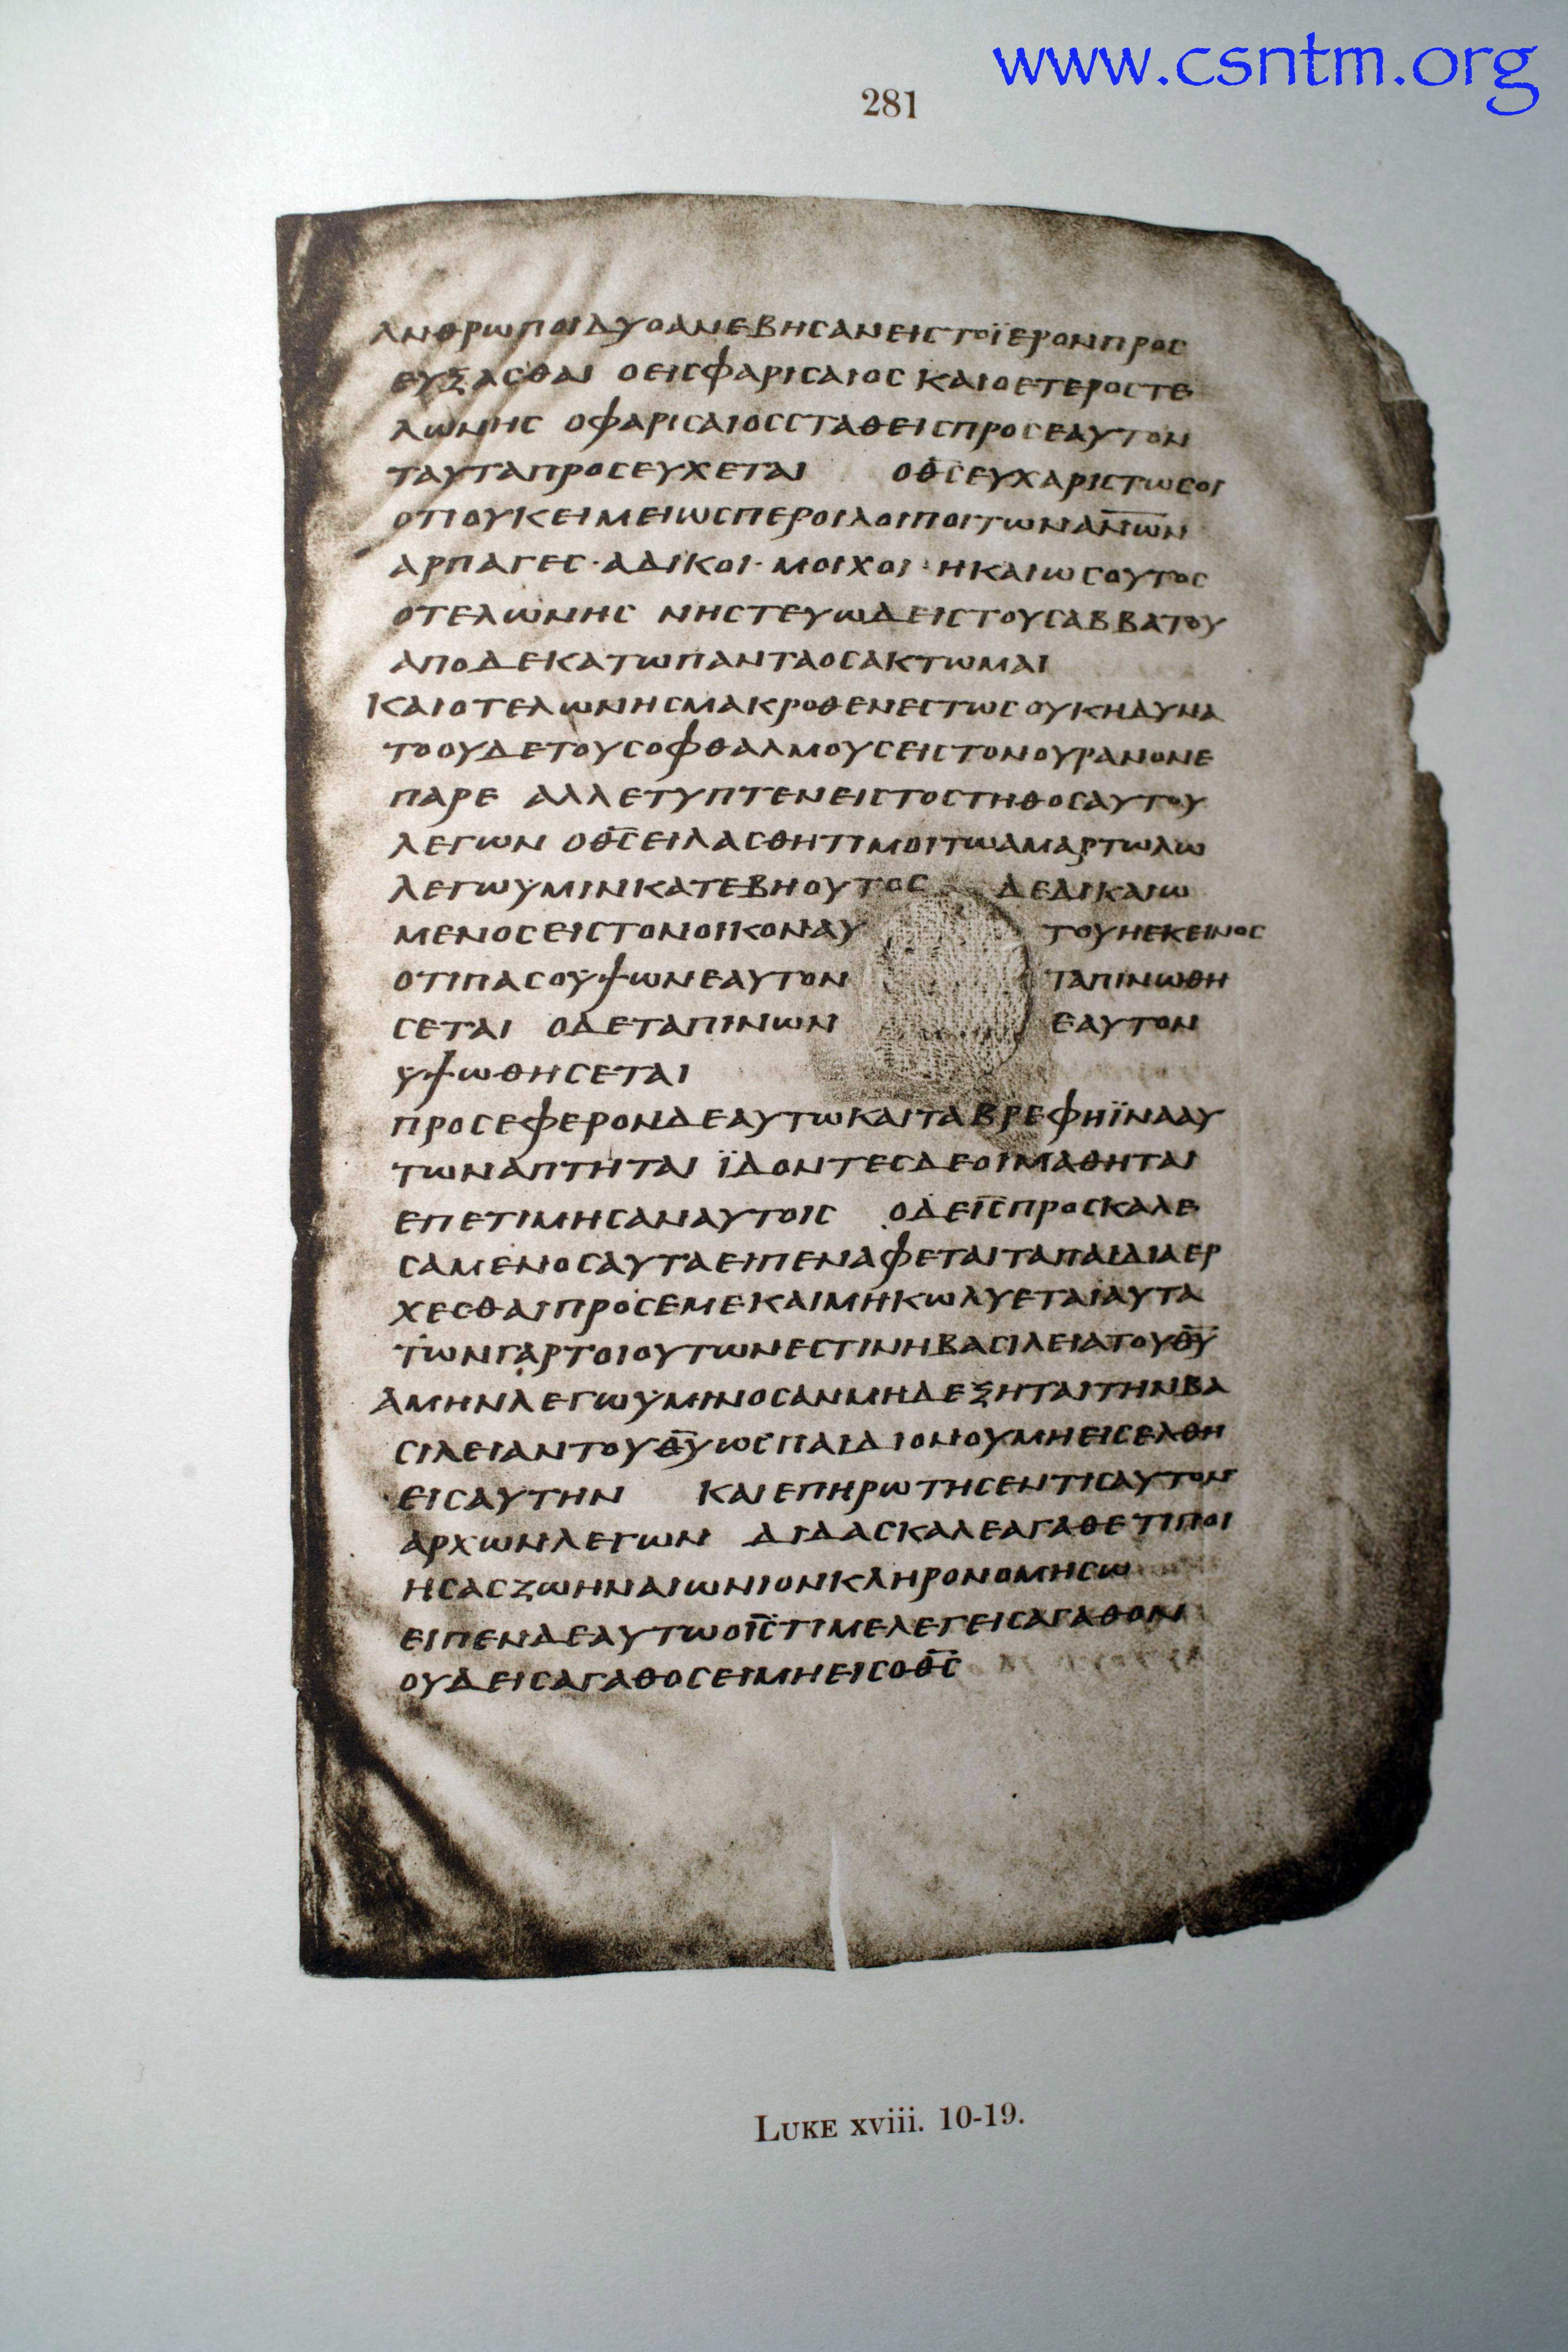 www.csntm.org
281
ΑΝΘΡΩΠΟΙΔΥΟΑΝΕΒΗСΑΝΕΙСΤΟΪΕΡΟΝΠΡΟС
ΕΥΞΑСΘΑΙ ΟΕΙСΦΑΡΙСΑΙΟС ΚΑΙΟΕΤΕΡΟСΤΕ
ΛΩΝΗС ΟΦΑΡΙСΑΙΟССΤΑΘΕΙСΠΡΟСΕΑΥΤΟΝ
ΤΑΥΤΑΠΡΟСΕΥΧΕΤΑΙ ΟΘ̅С̅ΕΥΧΑΡΙСΤΩСΟΙ
ΟΤΙΟΥΚΕΙΜΕΙΩСΠΕΡΟΙΛΟΙΠΟΙΤΩΝΑ̅Ν̅Ω̅Ν̅
ΑΡΠΑΓΕС·ΑΔΙΚΟΙ·ΜΟΙΧΟΙ·ΗΚΑΙΩСΟΥΤΟС
ΟΤΕΛΩΝΗС ΝΗСΤΕΥΩΔΕΙСΤΟΥСΑΒΒΑΤΟΥ
ΑΠΟΔΕΚΑΤΩΠΑΝΤΑΟСΑΚΤΩΜΑΙ
ΚΑΙΟΤΕΛΩΝΗСΜΑΚΡΟΘΕΝΕСΤΩС ΟΥΚΗΔΥΝΑ
ΤΟΟΥΔΕΤΟΥСΟΦΘΑΛΜΟΥСΕΙСΤΟΝΟΥΡΑΝΟΝΕ
ΠΑΡΕ ΑΛΛΕΤΥΠΤΕΝΕΙСΤΟСΤΗΘΟСΑΥΤΟΥ
ΛΕΓΩΝ ΟΘ̅С̅ΕΙΛΑСΘΗΤΙΜΟΙΤΩΑΜΑΡΤΩΛΩ
ΛΕΓΩΥΜΙΝΚΑΤΕΒΗΟΥΤΟС ΔΕΔΙΚΑΙΩ
ΜΕΝΟСΕΙСΤΟΝΟΙΚΟΝΑΥ ΤΟΥΗΕΚΕΙΝΟС
ΟΤΙΠΑСΟΫΨΩΝΕΑΥΤΟΝ ΤΑΠΙΝΩΘΗ
СΕΤΑΙ ΟΔΕΤΑΠΙΝΩΝ ΕΑΥΤΟΝ
ΫΨΩΘΗСΕΤΑΙ
ΠΡΟСΕΦΕΡΟΝΔΕΑΥΤΩΚΑΙΤΑΒΡΕΦΗΪΝΑΑΥ
ΤΩΝΑΠΤΗΤΑΙ ΪΔΟΝΤΕСΔΕΟΙΜΑΘΗΤΑΙ
ΕΠΕΤΙΜΗСΑΝΑΥΤΟΙС ΟΔΕΙ̅С̅ΠΡΟСΚΑΛΕ
СΑΜΕΝΟСΑΥΤΑΕΙΠΕΝΑΦΕΤΑΙΤΑΠΑΙΔΙΑΕΡ
ΧΕСΘΑΙΠΡΟСΕΜΕΚΑΙΜΗΚΩΛΥΕΤΑΙΑΥΤΑ
ΤΩΝΓΑΡΤΟΙΟΥΤΩΝΕСΤΙΝΗΒΑСΙΛΕΙΑΤΟΥΘ̅Υ̅
ΑΜΗΝΛΕΓΩΫΜΙΝΟСΑΝΜΗΔΕΞΗΤΑΙΤΗΝΒΑ
СΙΛΕΙΑΝΤΟΥΘ̅Υ̅ΩСΠΑΙΔΙΟΝΟΥΜΗΕΙСΕΛΘΗ
ΕΙСΑΥΤΗΝ ΚΑΙΕΠΗΡΩΤΗСΕΝΤΙСΑΥΤΟΝ
ΑΡΧΩΝΛΕΓΩΝ ΔΙΔΑСΚΑΛΕΑΓΑΘΕΤΙΠΟΙ
ΗСΑСΖΩΗΝΑΙΩΝΙΟΝΚΛΗΡΟΝΟΜΗСΩ
ΕΙΠΕΝΔΕΑΥΤΩΟΙ̅С̅ΤΙΜΕΛΕΓΕΙСΑΓΑΘΟΝ
ΟΥΔΕΙСΑΓΑΘΟСΕΙΜΗΕΙСΟΘ̅С̅
LUKE xviii. 10-19.